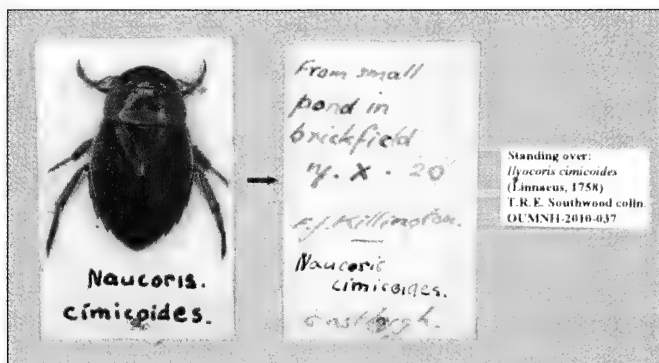 Naucoris.
cimicoides.
From small
pond in
brickfield
X. 20
F.J. Killington.
Naucoris
cimicoides.
Standing over:
Ilyocoris cimicoides
(Linnaeus, 1758)
T.R.E. Southwood colln.
OUMNH-2010-037